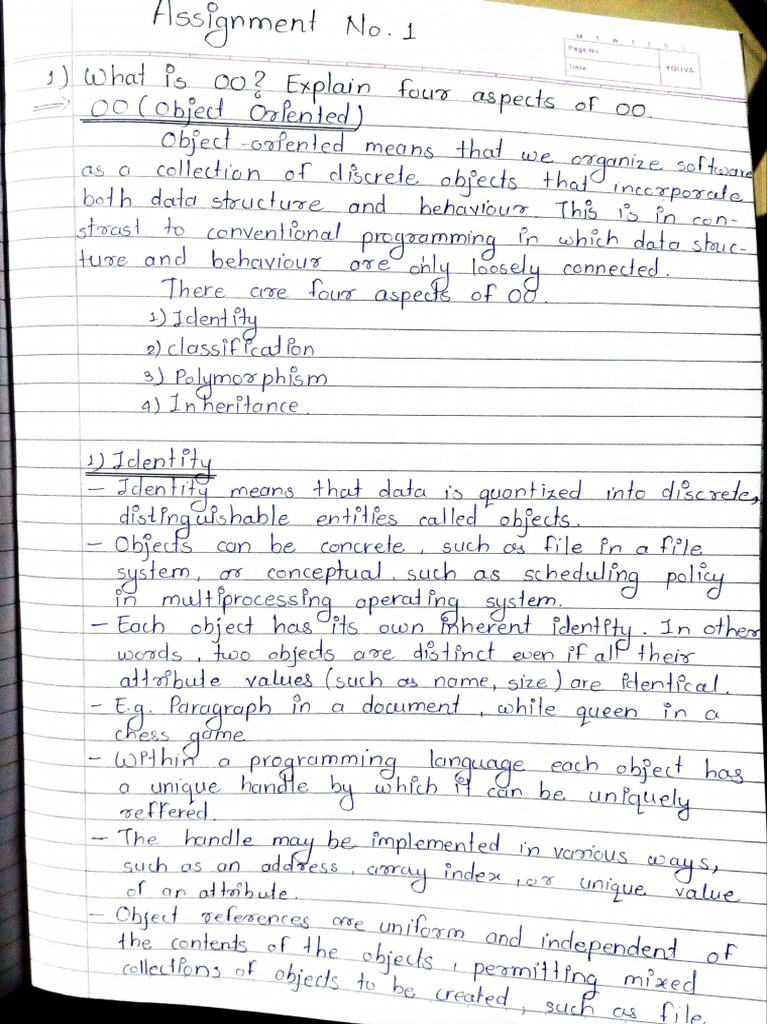 Assignment No. 1
M T W T F S S
Page No
Date
YOUVA
1) What is OO? Explain four aspects of OO.
OO (Object Oriented)
Object-oriented means that we organize software
as a collection of discrete objects that incorporate
both data structure and behaviour. This is in con-
strast to conventional programming in which data struc-
ture and behaviour are only loosely connected.
There are four aspects of OO.
1) Identity
2) classification
3) Polymorphism
4) Inheritance.
1) Identity
- Identity means that data is quantized into discrete,
distinguishable entities called objects.
- Objects can be concrete, such as file in a file
system, or conceptual, such as scheduling policy
in multiprocessing operating system.
- Each object has its own inherent identity. In other
words, two objects are distinct even if all their
attribute values (such as name, size) are identical.
- E.g. Paragraph in a document, while queen in a
chess game
- Within a programming language each object has
a unique handle by which it can be uniquely
reffered.
- The handle may be implemented in various ways,
such as an address, array index, or unique value
of an attribute.
- Object references are uniform and independent of
the contents of the objects, permitting mixed
collections of objects to be created, such as file.